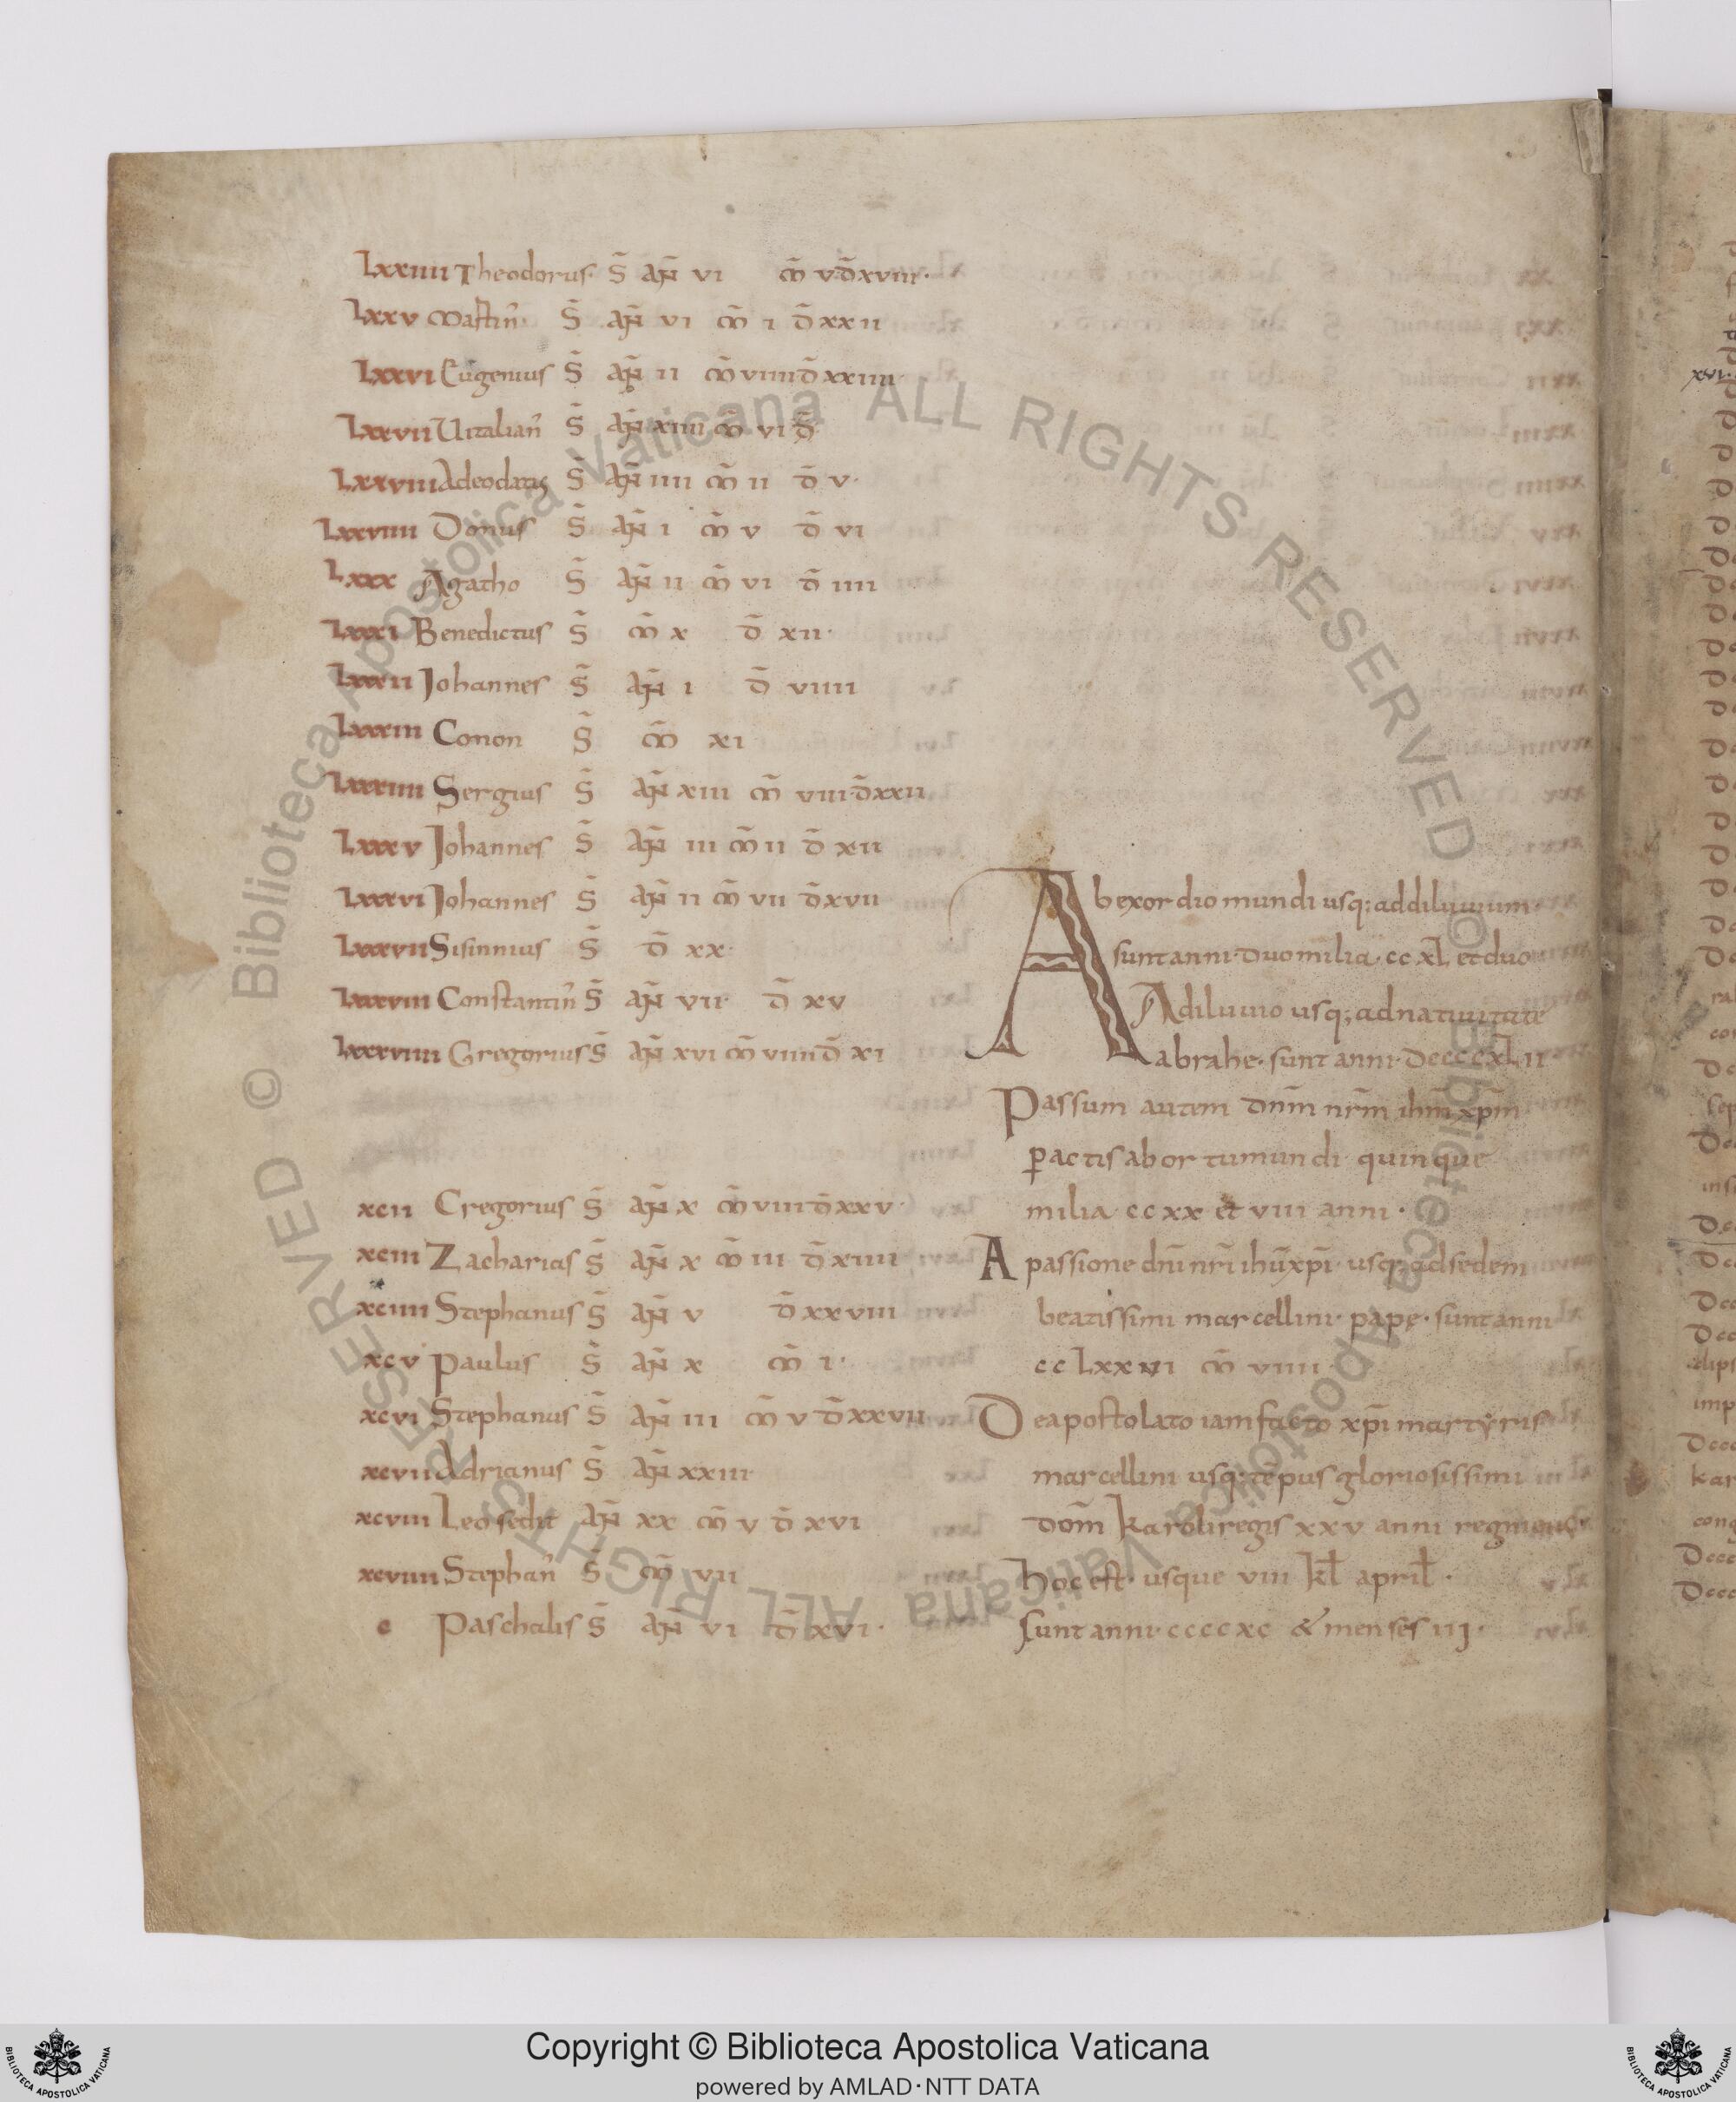 Lxxiiii Theodorus · S̄ aN̄ vi m̄ v d̄ xviii ·
Lxxv martin᾽ · S̄ aN̄ vi m̄ i d̄ xxii
Lxxvi Eugenius S̄ aN̄ ii m̄ viiii d̄ xxiiii
Lxxvii Uitalian᾽ S̄ aN̄ xiiii m̄ vi d̄
Lxxviii Adeodatus S̄ aN̄ iiii m̄ ii d̄ v ·
Lxxviiii Donus S̄ aN̄ i m̄ v d̄ vi
Lxxx Agatho S̄ aN̄ ii m̄ vi d̄ iiii
Lxxxi Benedictus S̄ m̄ x d̄ xii ·
Lxxxii Johannes S̄ aN̄ i d̄ viiii
Lxxxiii Conon S̄ m̄ xi
Lxxxiiii Sergius S̄ aN̄ xiii m̄ viii d̄ xxii
Lxxxv Johannes S̄ aN̄ iii m̄ ii d̄ xii
Lxxxvi Johannes S̄ aN̄ ii m̄ vii d̄ xvii
Lxxxvii Sisinnius S̄ d̄ xx ·
Lxxxviii Constantin᾽ S̄ aN̄ vii · d̄ xv
Lxxxviiii Gregorius S̄ aN̄ xvi m̄ viiii d̄ xi
xcii Gregorius S̄ aN̄ x m̄ viii d̄ xxv ·
xciii Zacharias S̄ aN̄ x m̄ iii d̄ xiiii
xciiii Stephanus S̄ aN̄ v d̄ xxviii
xcv Paulus S̄ aN̄ x m̄ i ·
xcvi Stephanus S̄ aN̄ iii m̄ v d̄ xxvii
xcvii Adrianus S̄ aN̄ xxiii ·
xcviii Leo sedit aN̄ xx m̄ v d̄ xvi
xcviiii Stephan᾽ S̄ m̄ vii
c Paschalis S̄ aN̄ vi d̄ xvi ·
Ab exordio mundi usq; ad diluuium ·
sunt anni · duo milia · cc xL et duo
A diluuio usq; ad natiuitatē
abrahe · sunt anni · dccccxLii
Passum autem dn̄m nr̄m ihm̄ xp̄m
p̄actis ab ortu mundi quinque
milia cc xx et viii anni ·
A passione dn̄i nr̄i ihū xp̄i · usq; ad sedem
beatissimi marcellini · papę · sunt anni
cc Lxx vi m̄ viiii ·
De apostolato iam facto xp̄i martyris
marcellini usq; tēpus gloriosissimi
dom̄ karoli regis xxv anni regni
hoc est · usque viii kł april ·
sunt anni · cccc xc & menses iij ·
Copyright © Biblioteca Apostolica Vaticana
powered by AMLAD·NTT DATA